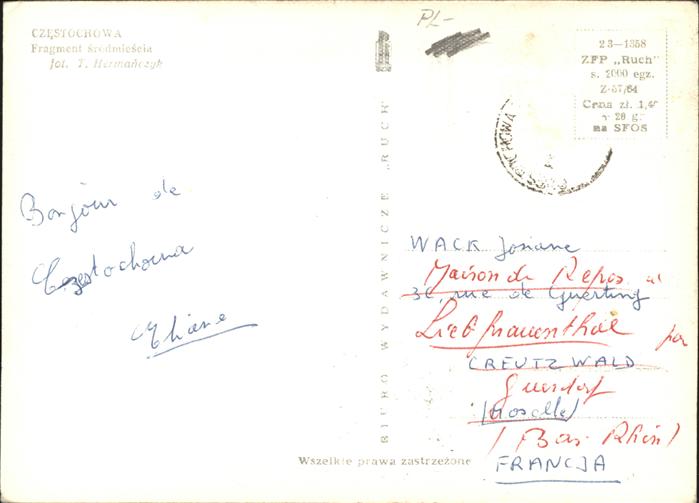 CZĘSTOCHOWA
Fragment śródmieścia
fot. T. Hermańczyk
PL-
23-1358
ZFP „Ruch"
s. 2000 egz.
Z-37/64
Cena zł. 1,40
+ 20 g.
na SFOS
BIURO WYDAWNICZE „RUCH"
Bonjour de
Częstochowa
Eliane
WACK Josiane
Maison de Repos
3c, rue de Guerting
Liebfrauenthal par
CREUTZWALD
Goersdorf
(Moselle)
(Bas-Rhin)
FRANCJA
Wszelkie prawa zastrzeżone